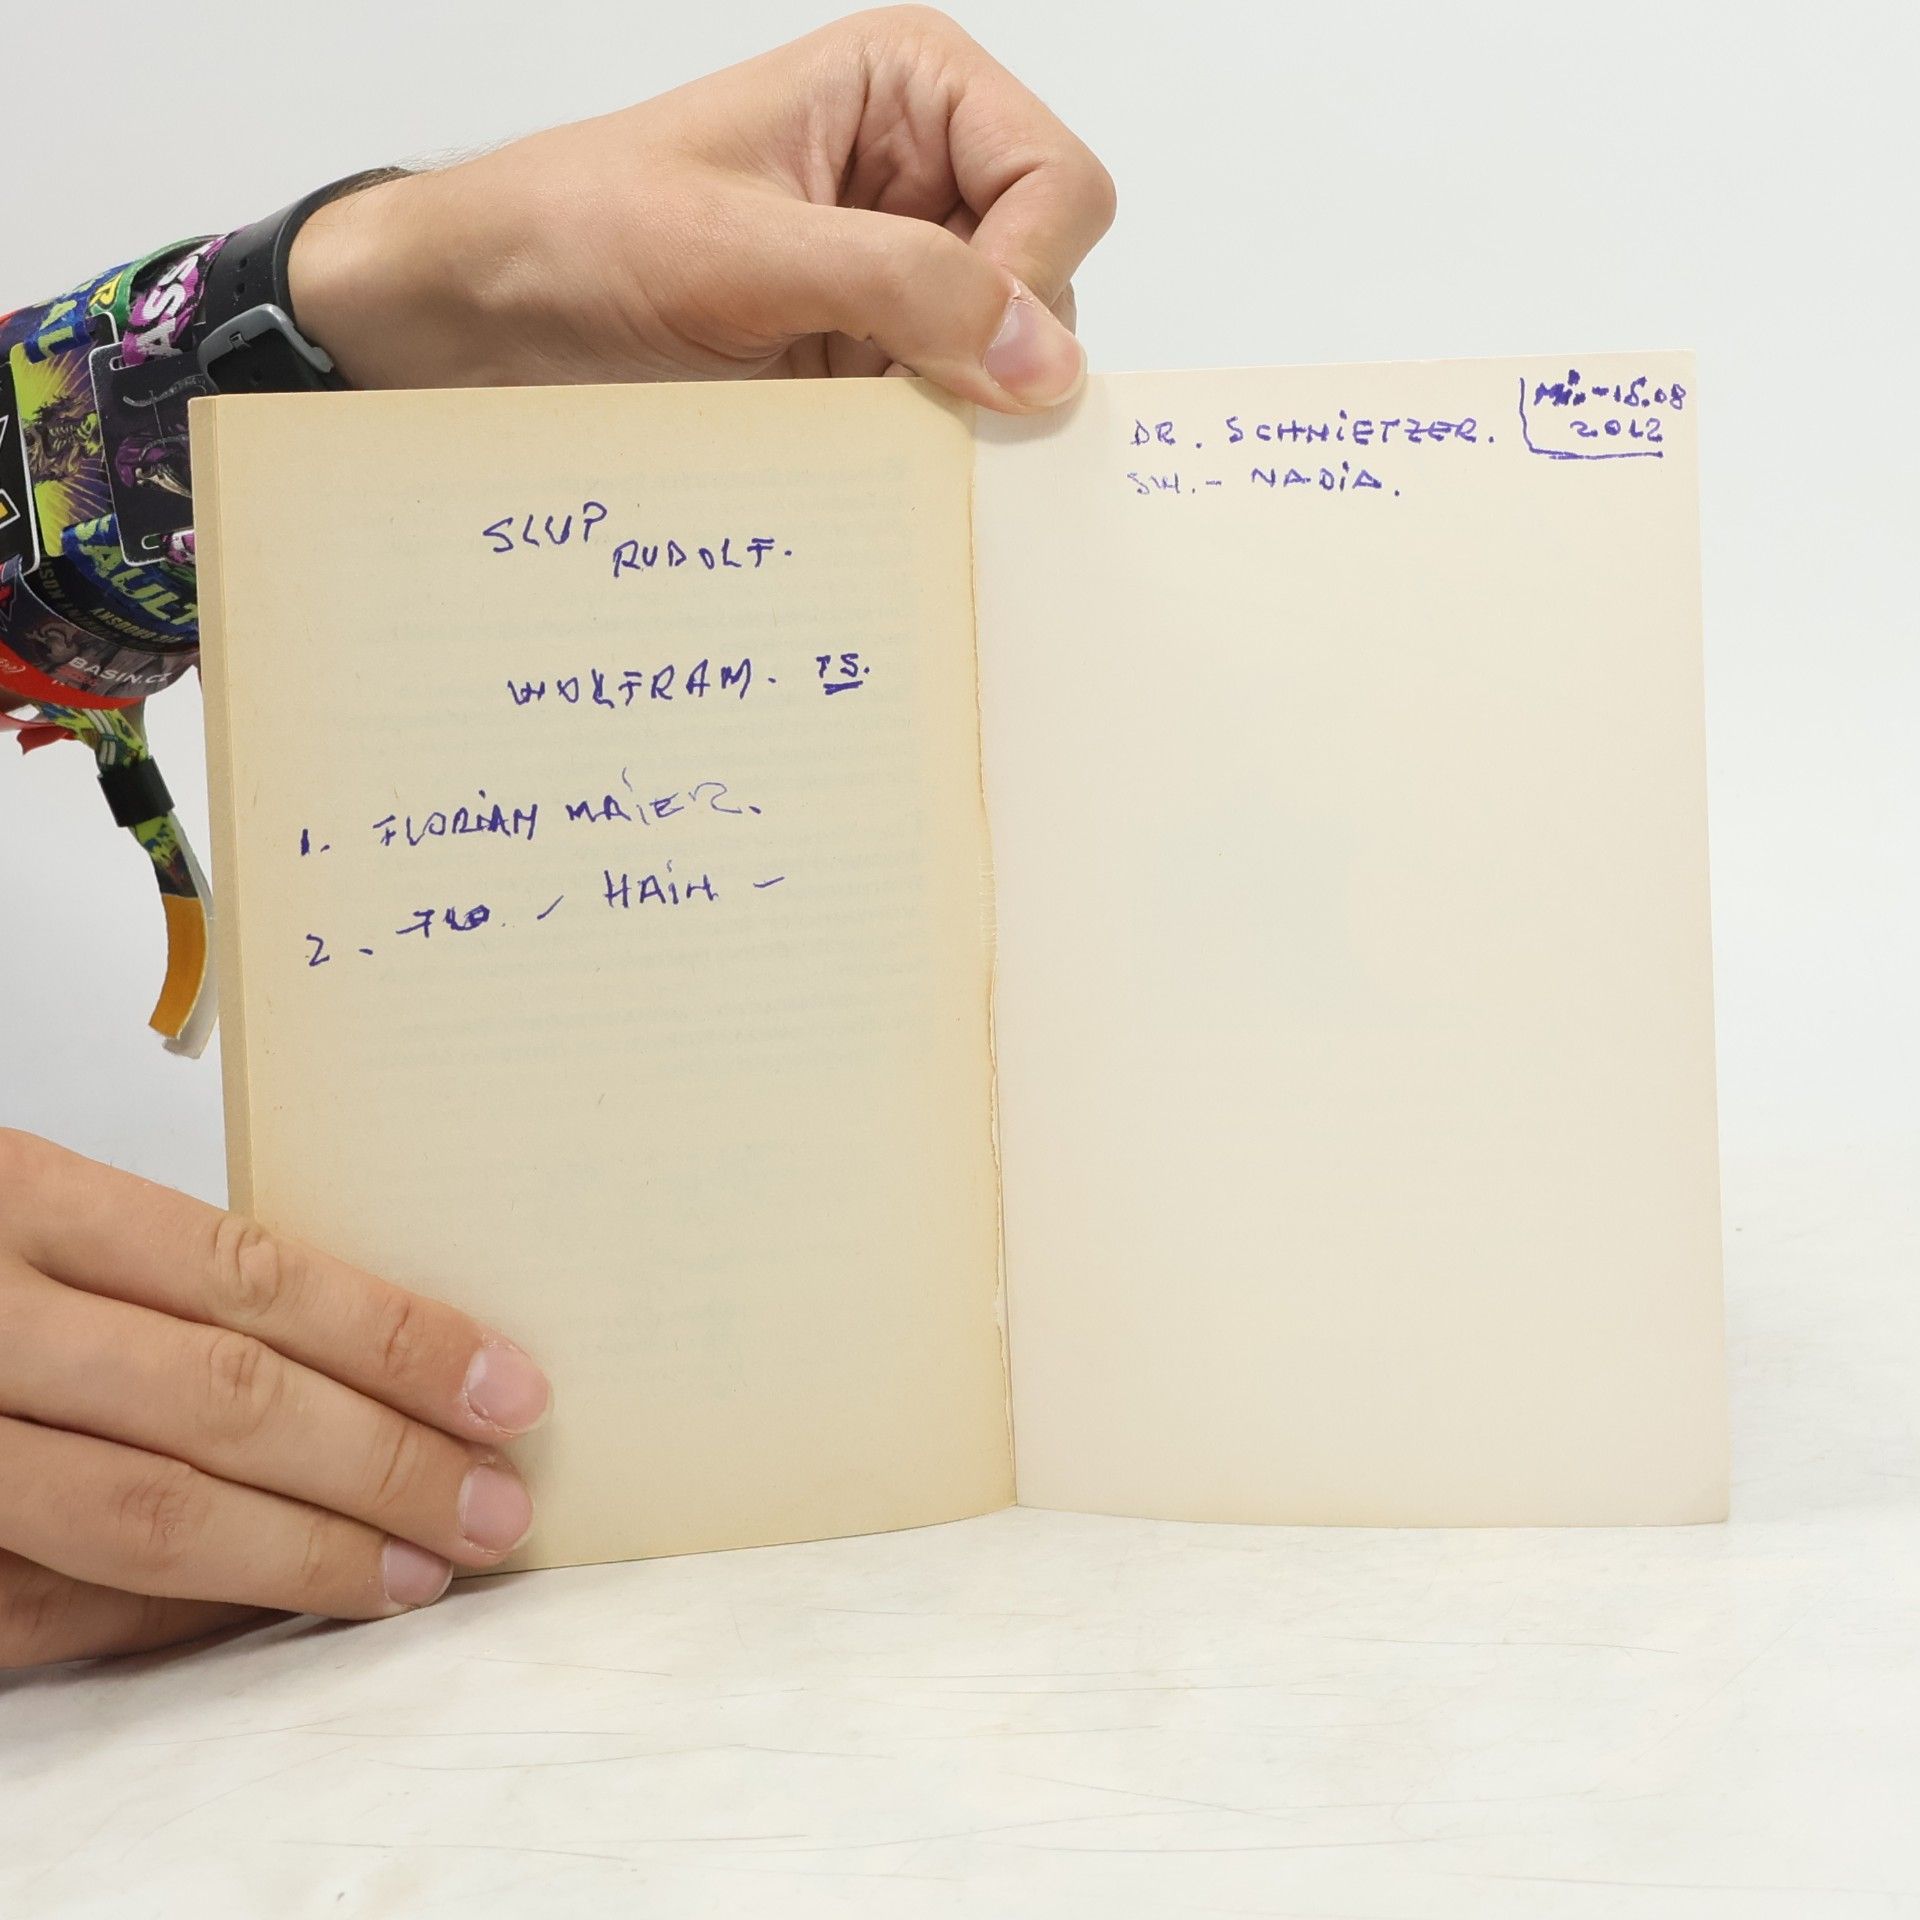 SLUP
RUDOLF.
WOLFRAM. 75.
1. FLORIAN MAiER.
2. FLO. - HAiN -
DR. SCHNiETZER.
SW. - NADiA.
Mi. - 15.08
2012
BASIN.CZ